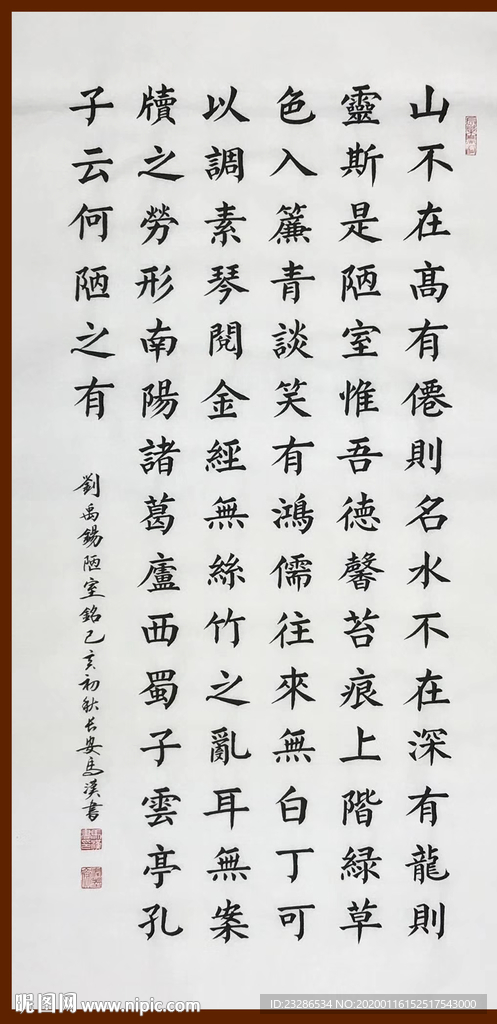 山不在高有僊則名水不在深有龍則
靈斯是陋室惟吾德馨苔痕上階綠草
色入簾青談笑有鴻儒往來無白丁可
以調素琴閱金經無絲竹之亂耳無案
牘之勞形南陽諸葛廬西蜀子雲亭孔
子云何陋之有
劉禹錫陋室銘乙亥初秋長安馬漢書
昵图网 www.nipic.com
ID:23286534 NO:20200116152517543000